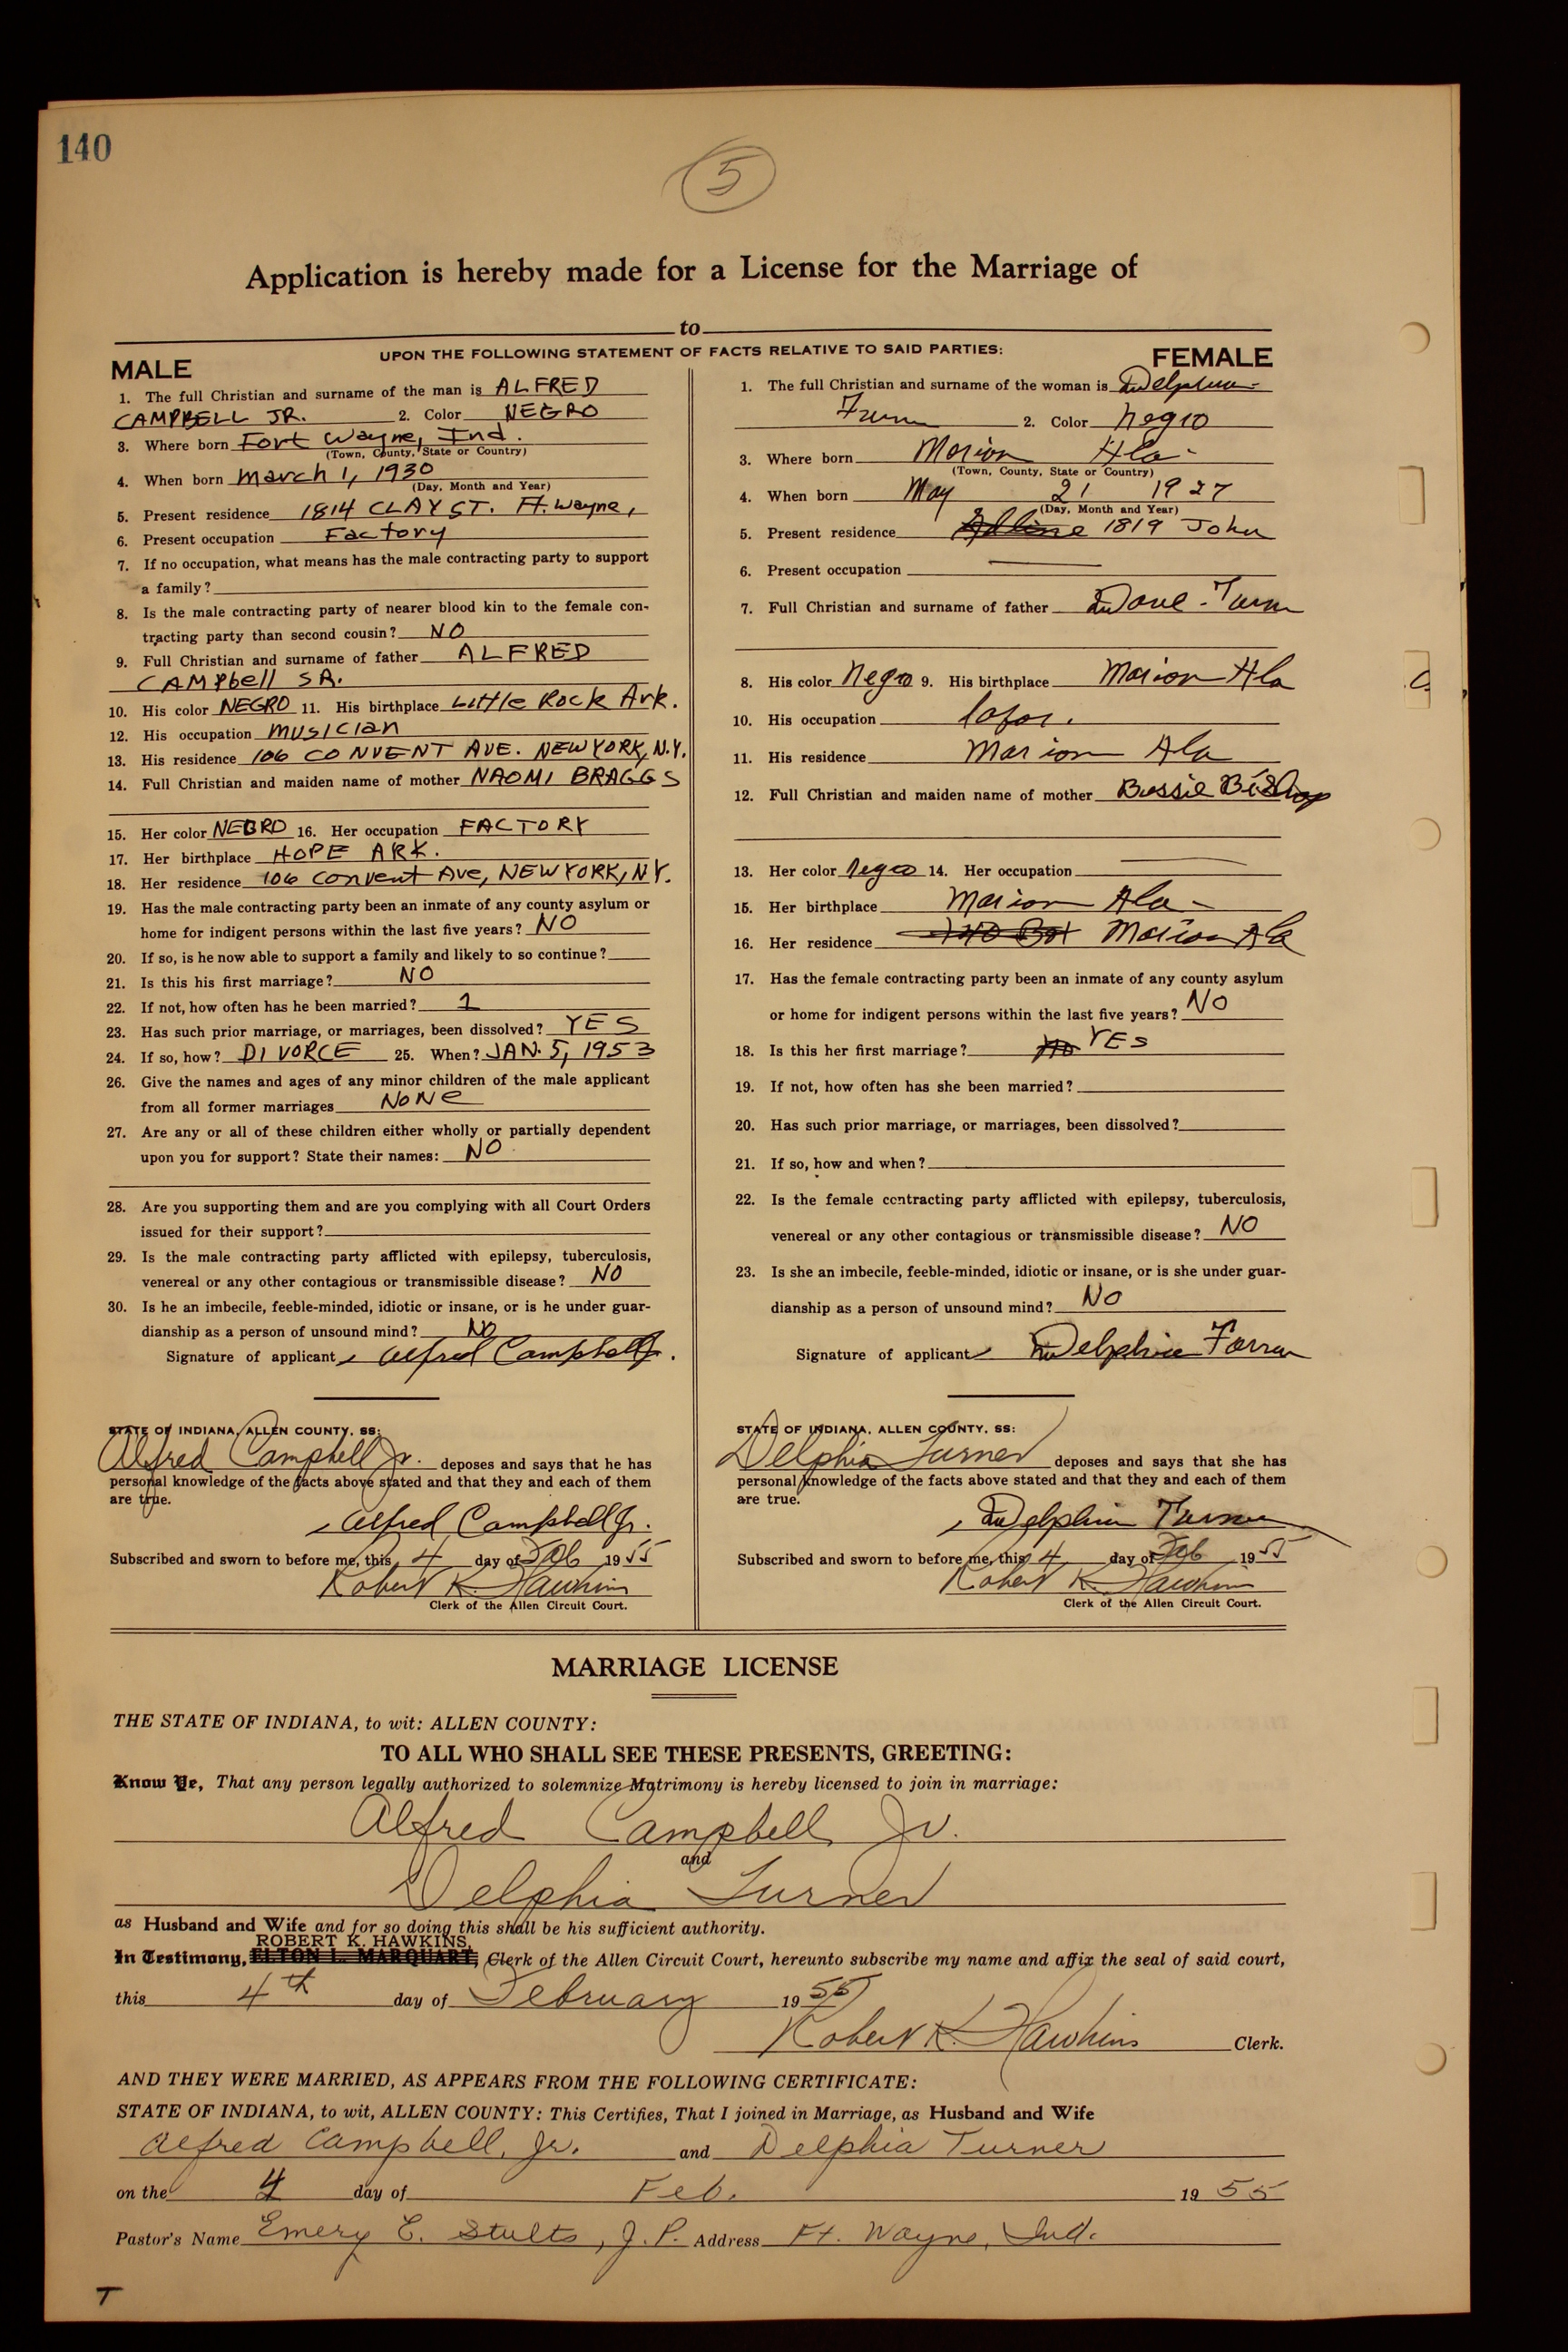 140
5
Application is hereby made for a License for the Marriage of
to
UPON THE FOLLOWING STATEMENT OF FACTS RELATIVE TO SAID PARTIES:
MALE
1. The full Christian and surname of the man is ALFRED
CAMPBELL JR. 2. Color NEGRO
3. Where born Fort Wayne, Ind.
(Town, County, State or Country)
4. When born March 1, 1930
(Day, Month and Year)
5. Present residence 1814 CLAY ST. Ft. Wayne,
6. Present occupation Factory
7. If no occupation, what means has the male contracting party to support
a family?
8. Is the male contracting party of nearer blood kin to the female con-
tracting party than second cousin? NO
9. Full Christian and surname of father ALFRED
CAMPbell SR.
10. His color NEGRO 11. His birthplace Little Rock Ark.
12. His occupation musician
13. His residence 106 CONVENT AVE. NEW YORK, N.Y.
14. Full Christian and maiden name of mother NAOMI BRAGGS
15. Her color NEGRO 16. Her occupation FACTORY
17. Her birthplace HOPE ARK.
18. Her residence 106 Convent Ave, NEW YORK, N.Y.
19. Has the male contracting party been an inmate of any county asylum or
home for indigent persons within the last five years? NO
20. If so, is he now able to support a family and likely to so continue?
21. Is this his first marriage? NO
22. If not, how often has he been married? 1
23. Has such prior marriage, or marriages, been dissolved? YES
24. If so, how? DIVORCE 25. When? JAN. 5, 1953
26. Give the names and ages of any minor children of the male applicant
from all former marriages NONe
27. Are any or all of these children either wholly or partially dependent
upon you for support? State their names: NO
28. Are you supporting them and are you complying with all Court Orders
issued for their support?
29. Is the male contracting party afflicted with epilepsy, tuberculosis,
venereal or any other contagious or transmissible disease? NO
30. Is he an imbecile, feeble-minded, idiotic or insane, or is he under guar-
dianship as a person of unsound mind? NO
Signature of applicant Alfred Campbell Jr.
STATE OF INDIANA, ALLEN COUNTY, SS:
Alfred Campbell Jr. deposes and says that he has
personal knowledge of the facts above stated and that they and each of them
are true.
Alfred Campbell Jr.
Subscribed and sworn to before me, this 4 day of Feb 1955
Robert K. Hawkins
Clerk of the Allen Circuit Court.
FEMALE
1. The full Christian and surname of the woman is
2. Color Negro
3. Where born Marion Ala
(Town, County, State or Country)
4. When born May 21 1927
(Day, Month and Year)
5. Present residence 1819 John
6. Present occupation
7. Full Christian and surname of father
8. His color Negro 9. His birthplace Marion Ala
10. His occupation
11. His residence Marion Ala
12. Full Christian and maiden name of mother Bessie Bishop
13. Her color Negro 14. Her occupation
15. Her birthplace Marion Ala
16. Her residence Marion Ala
17. Has the female contracting party been an inmate of any county asylum
or home for indigent persons within the last five years? NO
18. Is this her first marriage? No YES
19. If not, how often has she been married?
20. Has such prior marriage, or marriages, been dissolved?
21. If so, how and when?
22. Is the female contracting party afflicted with epilepsy, tuberculosis,
venereal or any other contagious or transmissible disease? NO
23. Is she an imbecile, feeble-minded, idiotic or insane, or is she under guar-
dianship as a person of unsound mind? NO
Signature of applicant Delphia
STATE OF INDIANA, ALLEN COUNTY, SS:
Delphia Turner deposes and says that she has
personal knowledge of the facts above stated and that they and each of them
are true.
Delphia Turner
Subscribed and sworn to before me, this 4 day of Feb 1955
Robert K. Hawkins
Clerk of the Allen Circuit Court.
MARRIAGE LICENSE
THE STATE OF INDIANA, to wit: ALLEN COUNTY:
TO ALL WHO SHALL SEE THESE PRESENTS, GREETING:
Know Ye, That any person legally authorized to solemnize Matrimony is hereby licensed to join in marriage:
Alfred Campbell Jr.
and
Delphia Turner
as Husband and Wife and for so doing this shall be his sufficient authority.
ROBERT K. HAWKINS,
In Testimony, ELTON L. MARQUART, Clerk of the Allen Circuit Court, hereunto subscribe my name and affix the seal of said court,
this 4th day of February 1955
Robert K. Hawkins Clerk.
AND THEY WERE MARRIED, AS APPEARS FROM THE FOLLOWING CERTIFICATE:
STATE OF INDIANA, to wit, ALLEN COUNTY: This Certifies, That I joined in Marriage, as Husband and Wife
Alfred Campbell, Jr. and Delphia Turner
on the 4 day of Feb. 1955
Pastor's Name Emery E. Stults, J.P. Address Ft. Wayne, Ind.
T